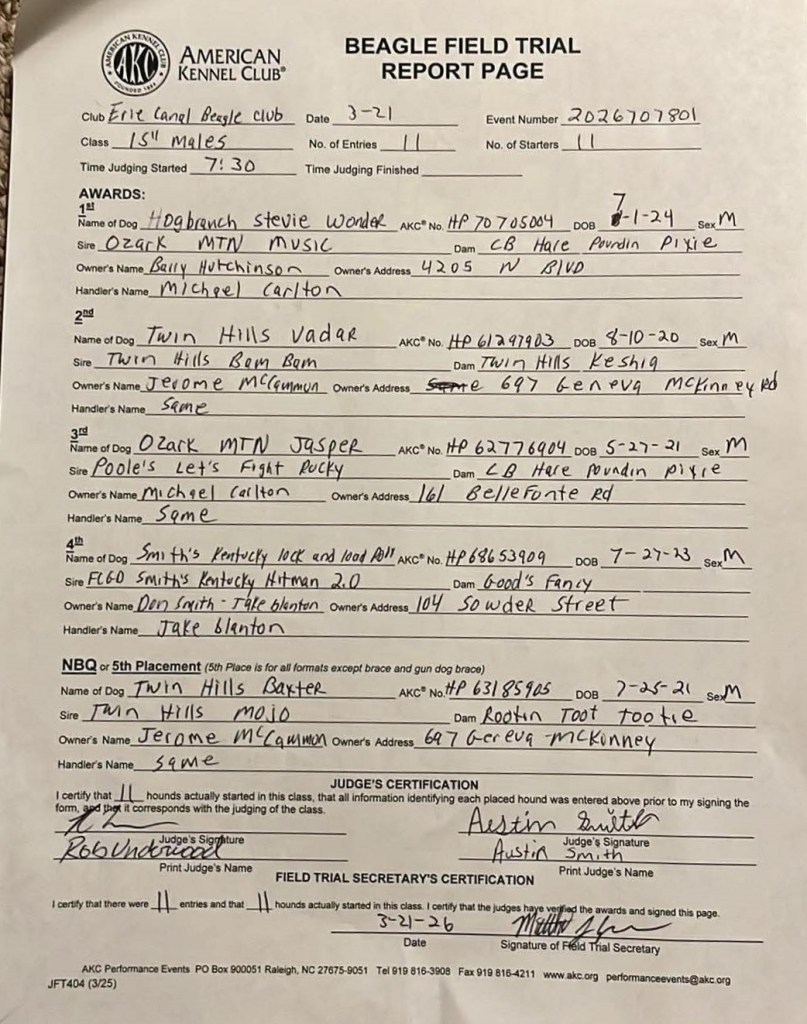 AMERICAN KENNEL CLUB
AKC
FOUNDED 1884
AMERICAN
KENNEL CLUB®
BEAGLE FIELD TRIAL
REPORT PAGE
Club Erie Canal Beagle Club Date 3-21 Event Number 2026707801
Class 15" Males No. of Entries 11 No. of Starters 11
Time Judging Started 7:30 Time Judging Finished
AWARDS:
1st
Name of Dog Hogbranch Stevie Wonder AKC® No. HP 70705004 DOB 7-1-24 Sex M
Sire Ozark MTN Music Dam CB Hare Poundin Pixie
Owner's Name Barry Hutchinson Owner's Address 4205 N BLVD
Handler's Name Michael Carlton
2nd
Name of Dog Twin Hills Vadar AKC® No. HP 61297903 DOB 8-10-20 Sex M
Sire Twin Hills Bam Bam Dam Twin Hills Keshia
Owner's Name Jerome McCammon Owner's Address 697 Geneva McKinney Rd
Handler's Name Same
3rd
Name of Dog Ozark MTN Jasper AKC® No. HP 62776904 DOB 5-27-21 Sex M
Sire Poole's Let's Fight Rocky Dam CB Hare Poundin Pixie
Owner's Name Michael Carlton Owner's Address 161 BelleFonte Rd
Handler's Name Same
4th
Name of Dog Smith's Kentucky lock and load AKC® No. HP68653909 DOB 7-27-23 Sex M
Sire FCGD Smith's Kentucky Hitman 2.0 Dam Good's Fancy
Owner's Name Don Smith - Jake blanton Owner's Address 104 Sowder Street
Handler's Name Jake blanton
NBQ or 5th Placement (5th Place is for all formats except brace and gun dog brace)
Name of Dog Twin Hills Baxter AKC® No. HP 63185905 DOB 7-25-21 Sex M
Sire Twin Hills Mojo Dam Rootin Toot Tootie
Owner's Name Jerome McCammon Owner's Address 697 Geneva-McKinney
Handler's Name Same
JUDGE'S CERTIFICATION
I certify that 11 hounds actually started in this class, that all information identifying each placed hound was entered above prior to my signing the
form, and that it corresponds with the judging of the class.
Austin Smith
Judge's Signature Judge's Signature
Rob Underwood Austin Smith
Print Judge's Name Print Judge's Name
FIELD TRIAL SECRETARY'S CERTIFICATION
I certify that there were 11 entries and that 11 hounds actually started in this class. I certify that the judges have verified the awards and signed this page.
3-21-26
Date Signature of Field Trial Secretary
AKC Performance Events PO Box 900051 Raleigh, NC 27675-9051 Tel 919 816-3908 Fax 919 816-4211 www.akc.org performanceevents@akc.org
JFT404 (3/25)